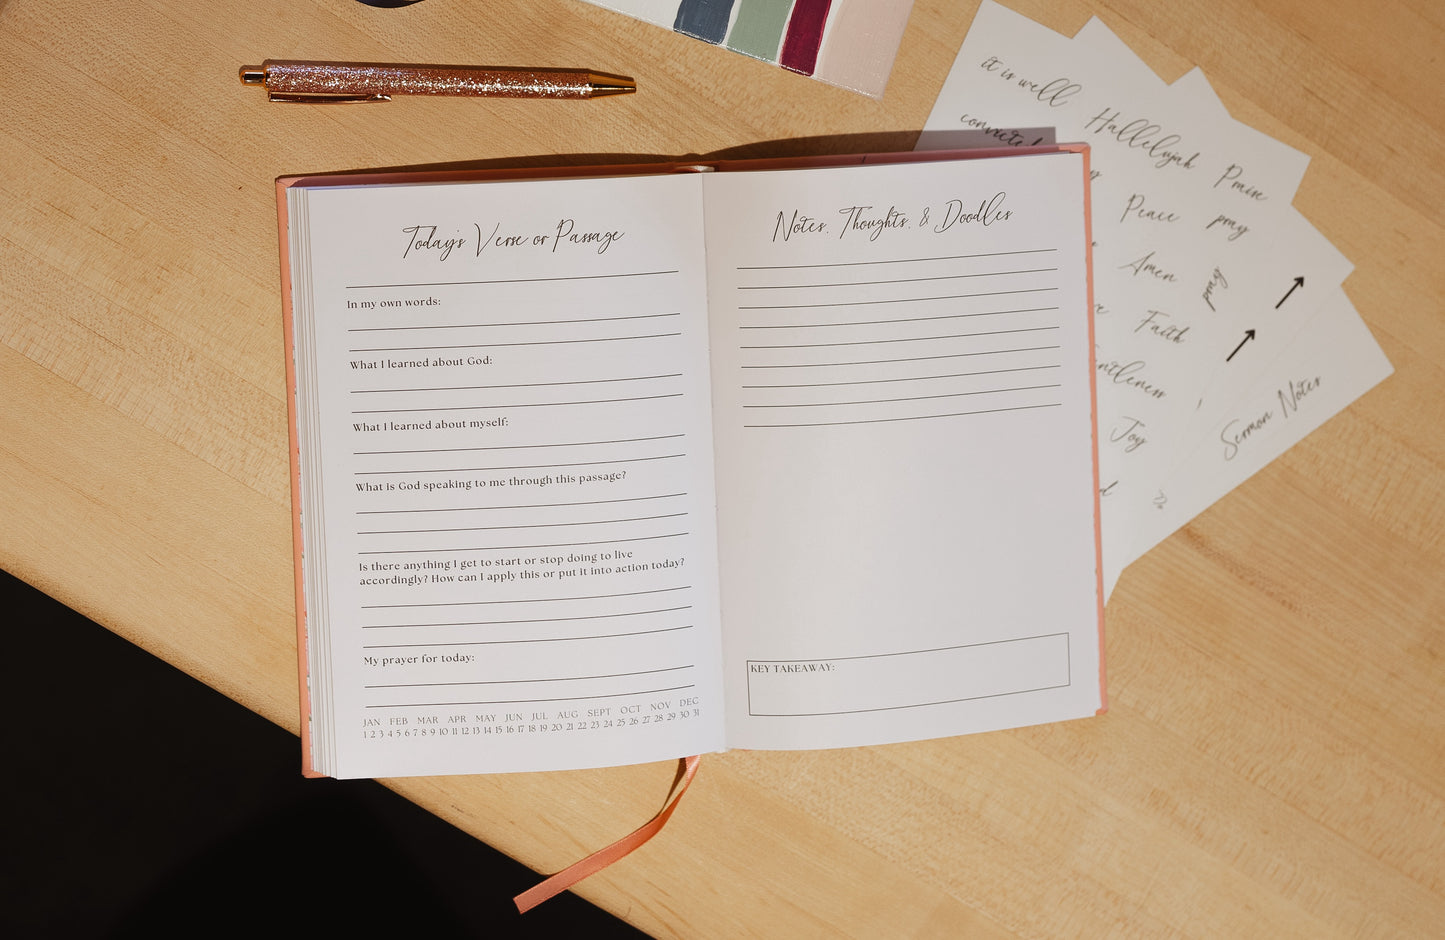 Today's Verse or Passage
In my own words:
What I learned about God:
What I learned about myself:
What is God speaking to me through this passage?
Is there anything I get to start or stop doing to live
accordingly? How can I apply this or put it into action today?
My prayer for today:
JAN FEB MAR APR MAY JUN JUL AUG SEPT OCT NOV DEC
1 2 3 4 5 6 7 8 9 10 11 12 13 14 15 16 17 18 19 20 21 22 23 24 25 26 27 28 29 30 31
Notes, Thoughts, & Doodles
KEY TAKEAWAY:
it is well
convicted
Hallelujah
Praise
Peace
pray
Amen
pray
Faith
Joy
Sermon Notes